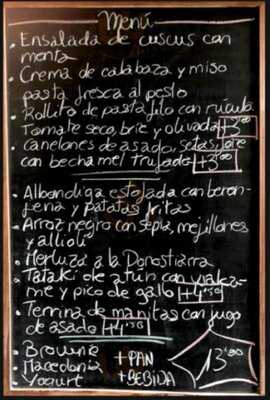 Menú
- Ensalada de cuscus con
menta
- Crema de calabaza y miso
pasta fresca al pesto
- Rollito de pasta filo con rúcula
Tomate seco, brie y olivada +3'00
- canelones de asado, setas, foie
con bechamel trufada +3'00
- Albondiga estofada con beren-
jena y patatas fritas
- Arroz negro con sepia, mejillones
y allioli
- Merluza a la Donostiarra
- Tataki de atún con wakame
me y pico de gallo +4'50
- Terrina de manitas con jugo
de asado +4'50
- Brownie
- Macedonia +PAN 13'90
- Yogurt +BEBIDA